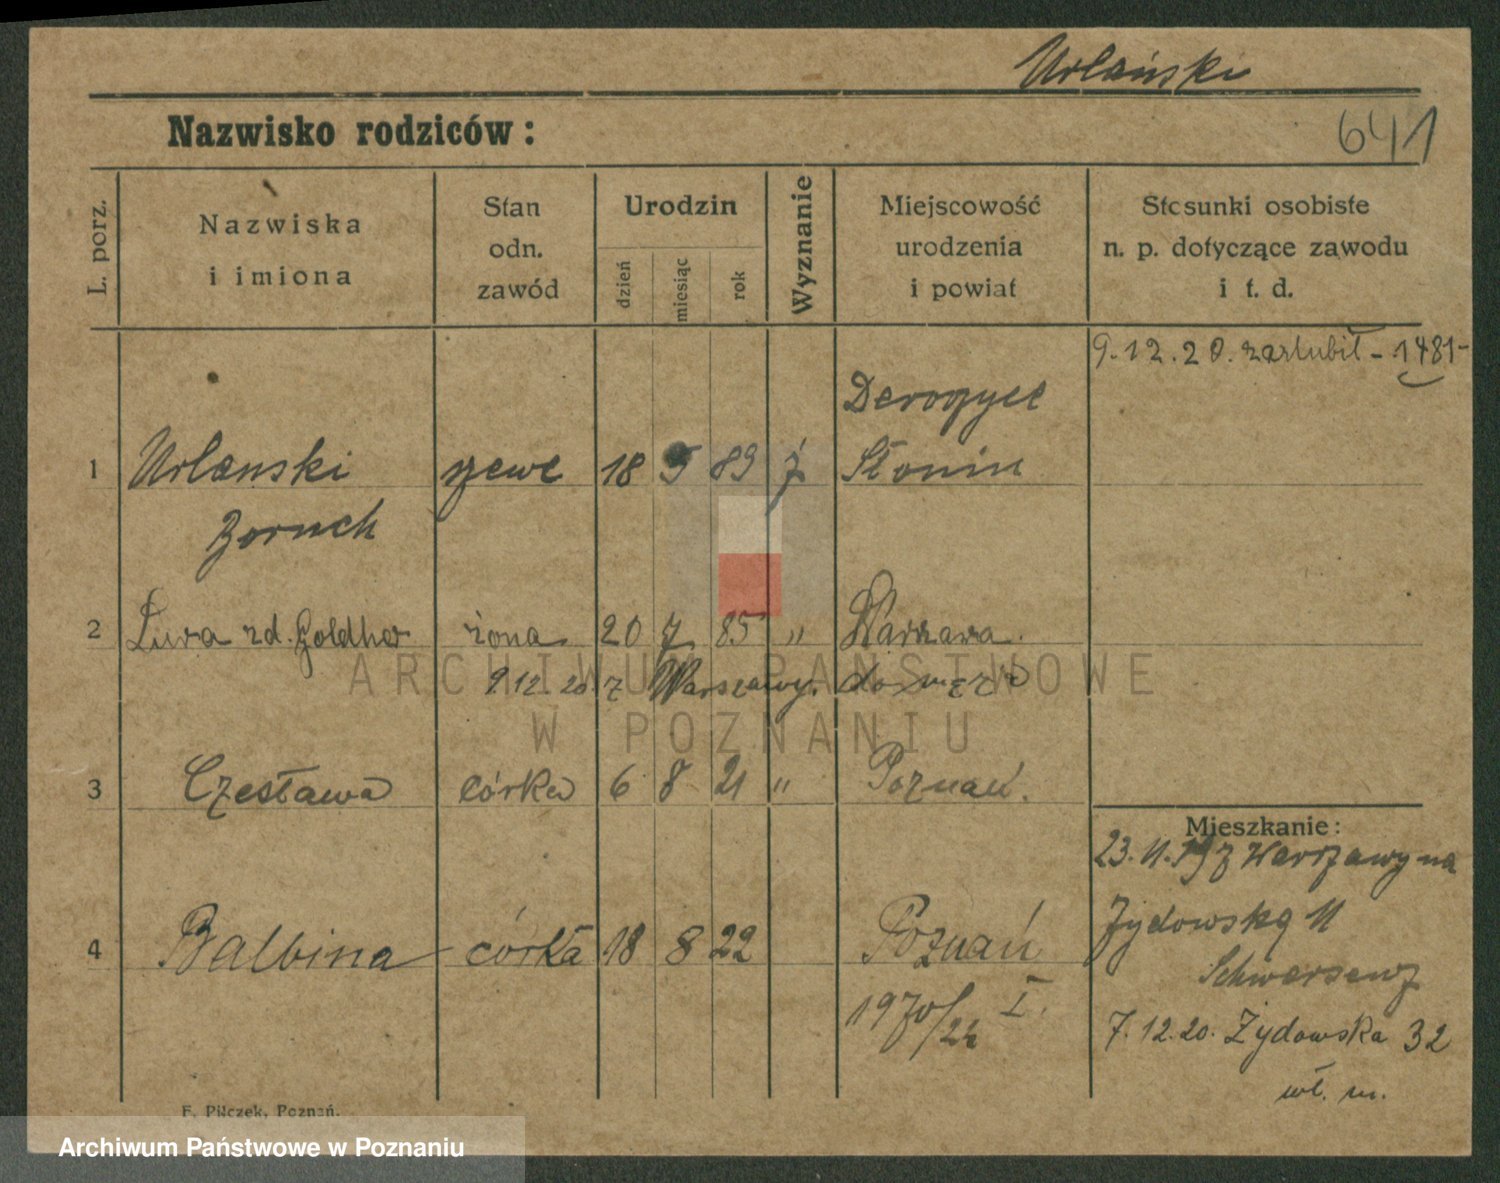 Urlański
Nazwisko rodziców:
641
L. porz.
Nazwiska
i imiona
Stan
odn.
zawód
Urodzin
dzień
miesiąc
rok
Wyznanie
Miejscowość
urodzenia
i powiat
Stosunki osobiste
n. p. dotyczące zawodu
i t. d.
9.12.20. zaślubił - 1481-
1 Urlanski szewc 18 5 89 ż Słonin
Boruch
2 zd. żona 20 7 85 " Warszawa.
9 12 20. z Warszawy. do męża
3 Czesława córka 6 8 21 " Poznań.
Mieszkanie:
23.11.19 z Warszawy na
Żydowską 11
Schwarsenz
4 Balbina córka 18 8 22 Poznań
1970/22 I.
7.12.20. Żydowska 32
wł. m.
F. Pilczek, Poznań.
ARCHIWUM PAŃSTWOWE
W POZNANIU
Archiwum Państwowe w Poznaniu